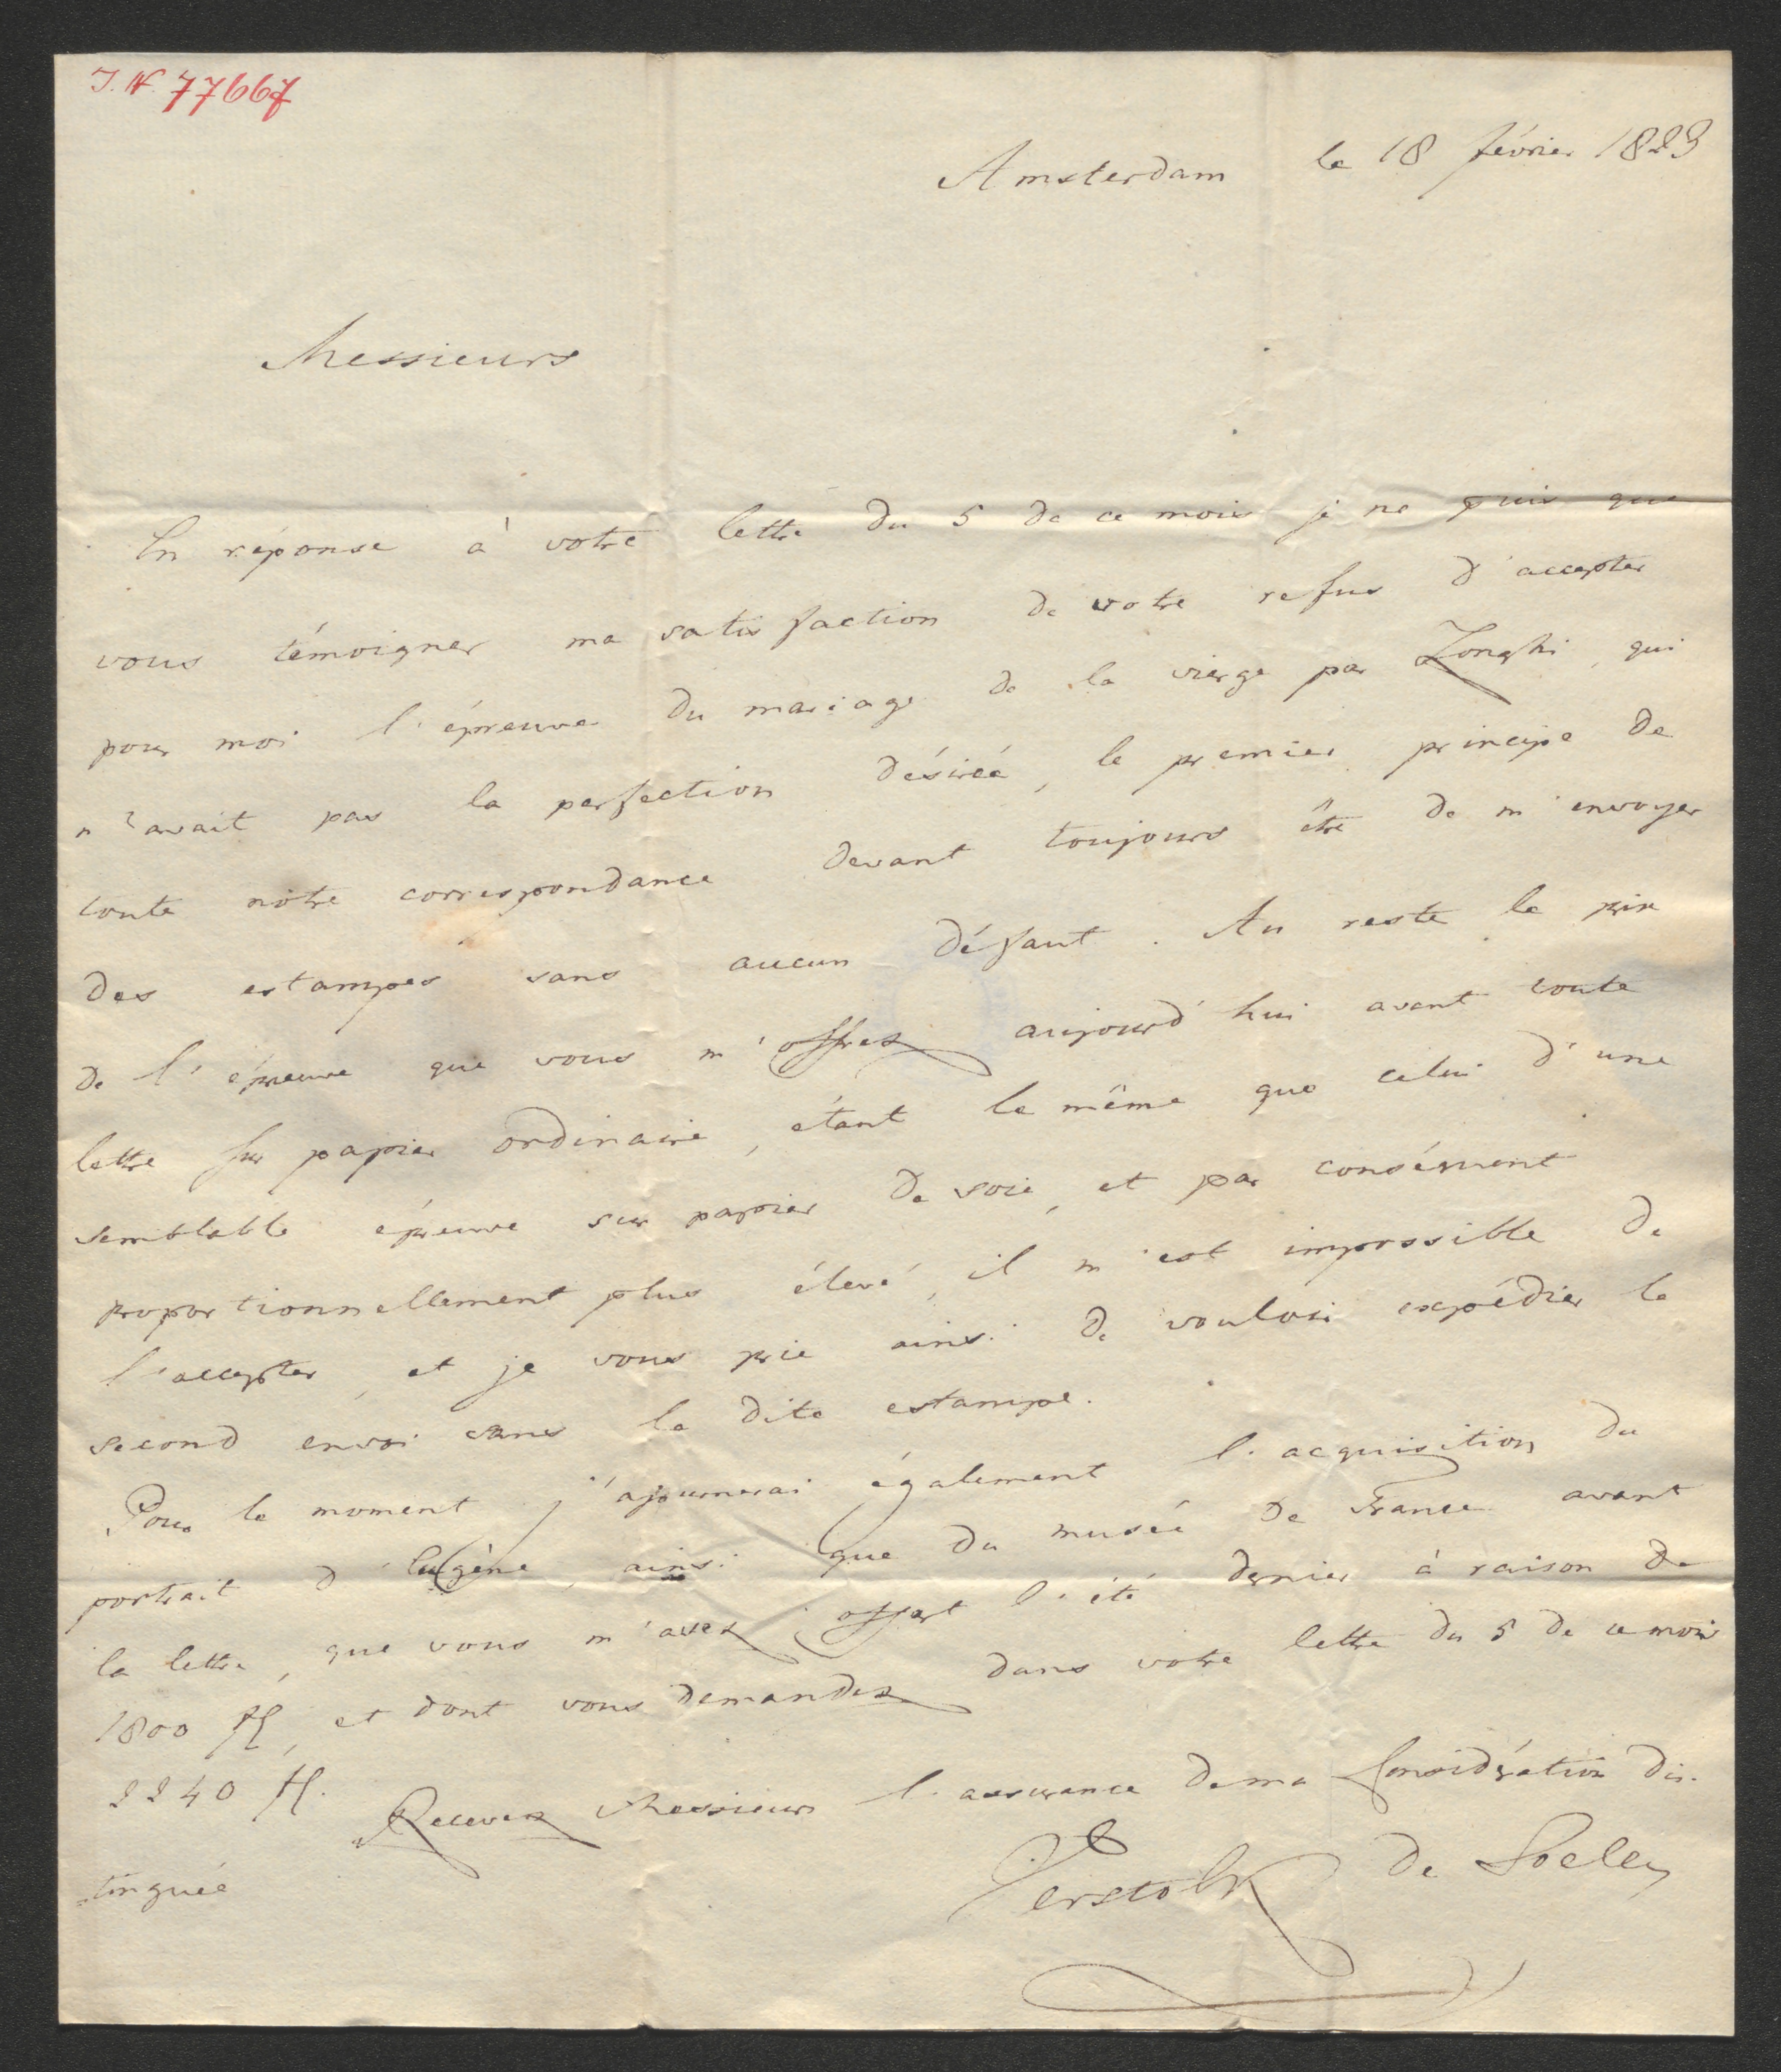 J. N. 77667
Amsterdam le 18 février 1823
Messieurs
En réponse à votre lettre du 5 de ce mois je ne puis que
vous témoigner ma satisfaction de votre refus d'accepter
pour moi l'épreuve du mariage de la vierge par Longhi, qui
n'avait pas la perfection désirée, le premier principe de
toute nôtre correspondance devant toujours être de m'envoyer
des estampes sans aucun défaut. Au reste le prix
de l'épreuve que vous m'offrez aujourd'hui avant toute
lettre sur papier ordinaire, étant le même que celui d'une
semblable épreuve sur papier de soie, et par conséquent
proportionnellement plus élevé, il m'est impossible de
l'accepter, et je vous prie ainsi de vouloir expédier le
second envoi sans la dite estampe.
Pour le moment j'ajournerai également l'acquisition du
portrait d'Eugène, ainsi que du musée de France avant
la lettre, que vous m'avez offert l'été dernier à raison de
1800 fl, et dont vous demandez dans votre lettre du 5 de ce mois
2240 fl.
Recevez Messieurs l'assurance de ma Considération dis-
tinguée
Verstolk de Soelen